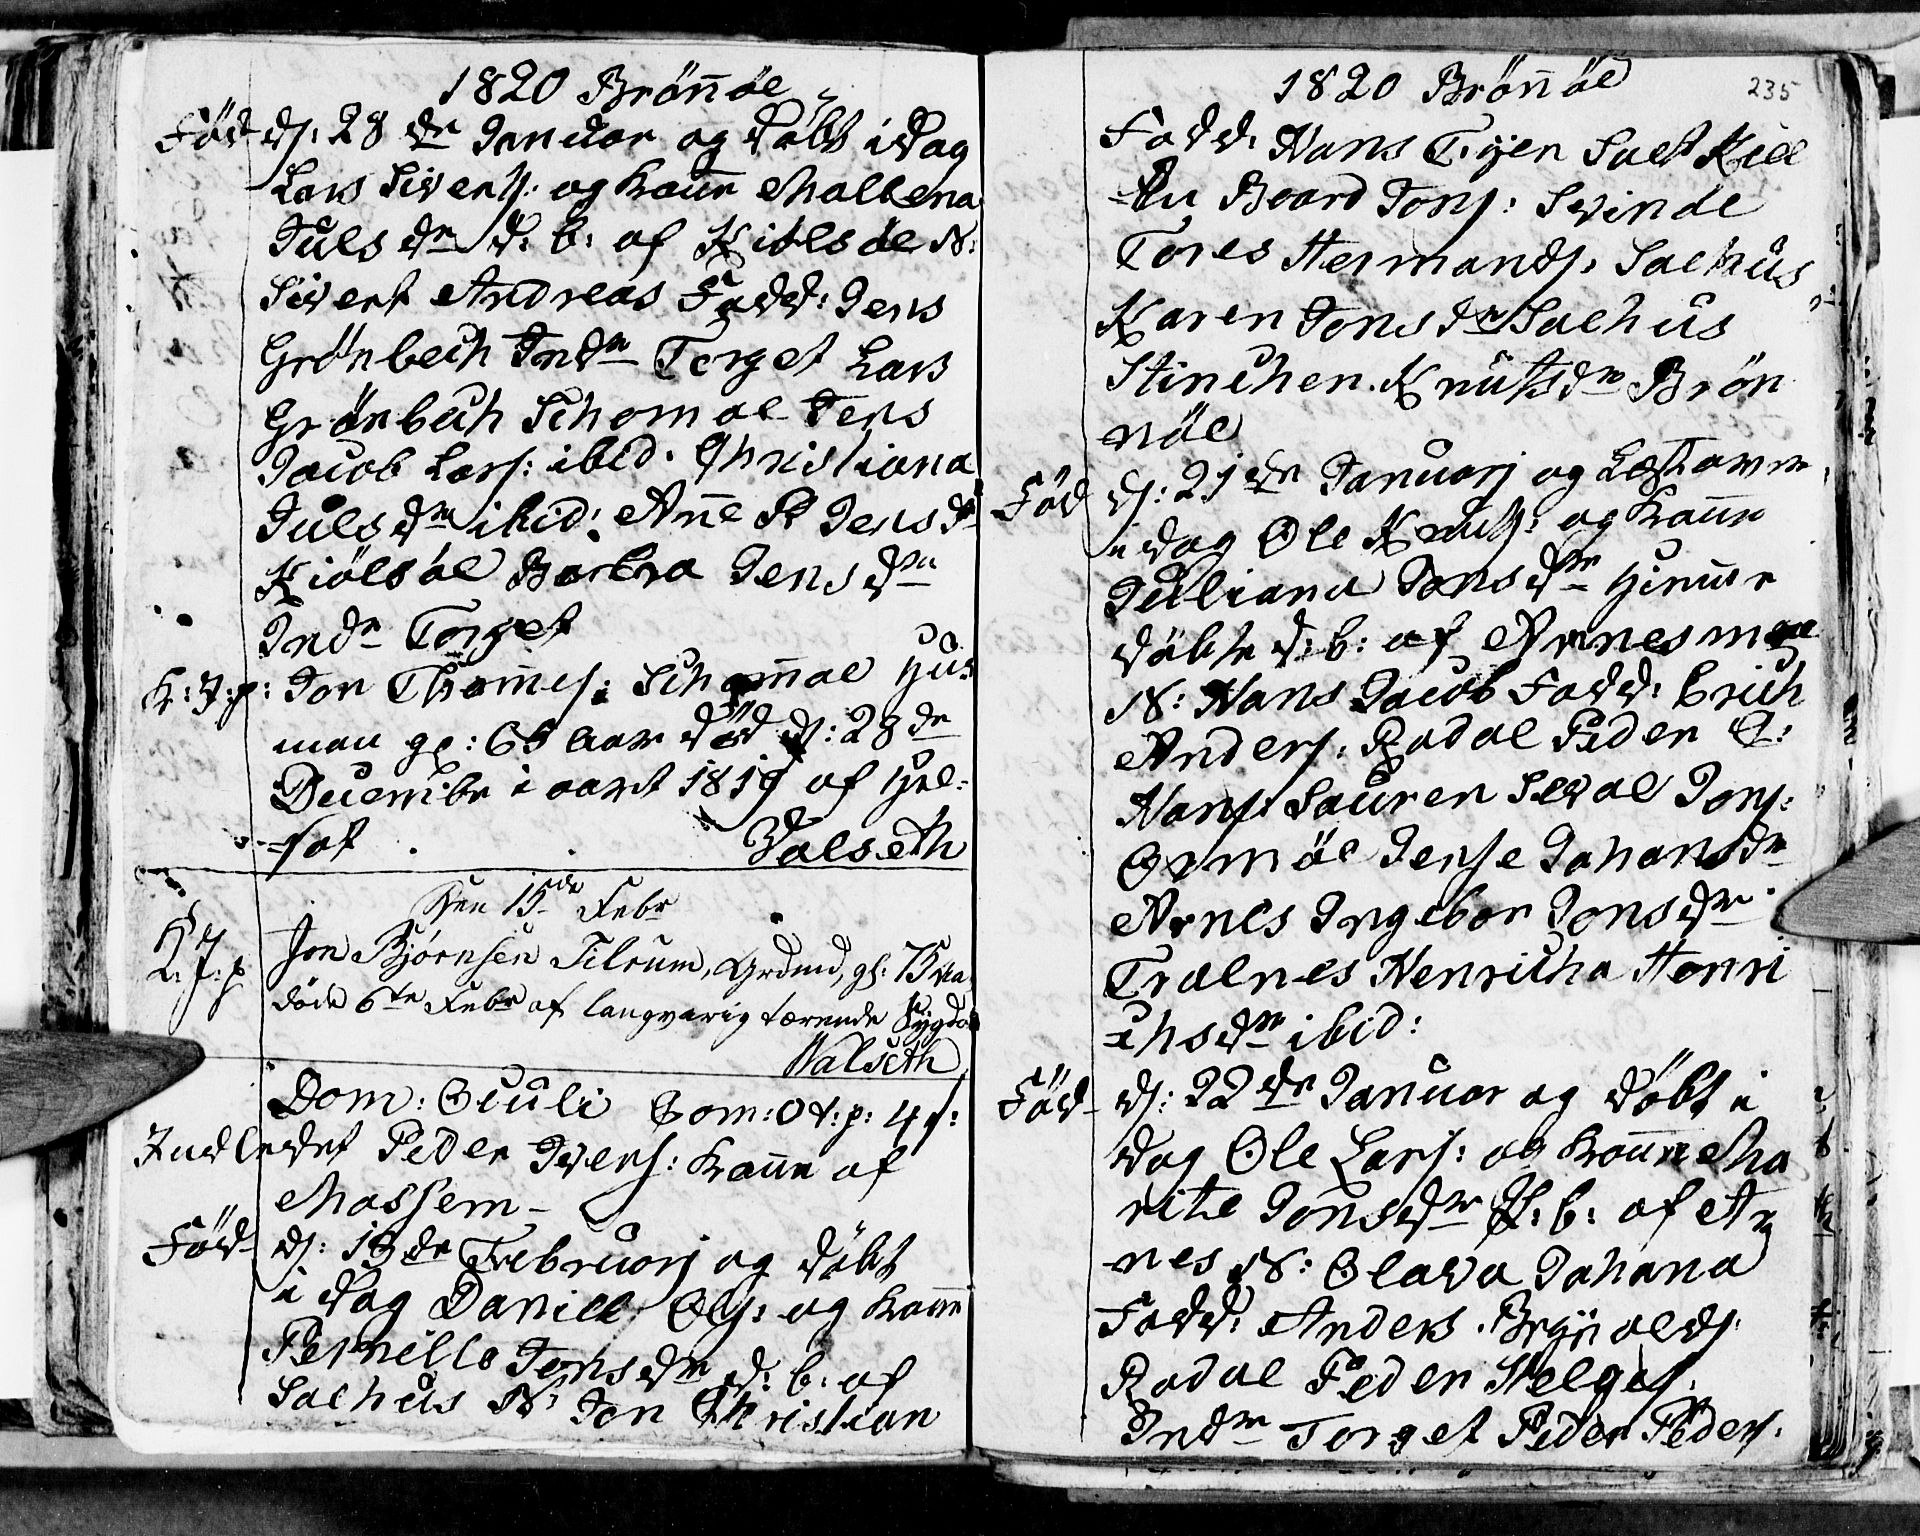 1820 Brönöe
Föd d: 28 de Januar og döbt i dag
Lars Sivers: og Kone Malbena
Juls dr d: b: af Kiölsöe N:
Sivert Andreas Fadd: Jens
Grönbech Indr Torget Lars
Grönbech Schomoe Jens
Jacob Lars: ibid. Christiana
Juls dr ibid: Ane P Jens dr
Kiölsöe Barbra Jens dr
Indr Torget
K: J: p: Jon Thomes: Schomoe Huus
man gl: 65 aar död d: 28 de
Decembr i aaret 1819 af Hel-
sot . Valseth
Den 15de Febr
K: J: p Jon Bjørnsen Tilrum, Grdmd, gl: 75 Aa
døde 6te Febr af langvarig tærende Sygdo
Valseth
Dom: Oculi Com: O t: p: 4 s:
Indledet Peder Ivers: Kone af
Mossem
Föd d: 13 de Februarj og döbt
i dag Daniel Ols: og Kone
Pernille Jons dr d: b: af
Salhus N: Jon Christian
1820 Brönöe 235
Fadd: Hans Tijen Salt Kiel
Bu Baard Jons: Svinde
Tores Hermands: Salhus
Karen Jons dr Salhus
Stinchen Knuts dr Brön
nöe
Föd d: 21 de Januarj og
i dag Ole Knuts: og Kone
Juliana Jons dr hiemme
döbte d: b: af Arnesmoe
N: Hans Jacob Fadd: Erich
Anders: Rodal Peder O:
Hans: Sauren Seval Jons:
Ormöe Jense Johans dr
Arnes Ingebor Jons dr
Trælnes Henricha Henri
chs dr ibid:
Föd d: 22 de Januar og döbt i
dag Ole Lars: og Kone Ma
rite Jons dr P: b: af Ar
nes N: Olava Johana
Fadd: Anders Brÿnolds:
Rodal Peder Helges:
Indr Torget Peder Peders: